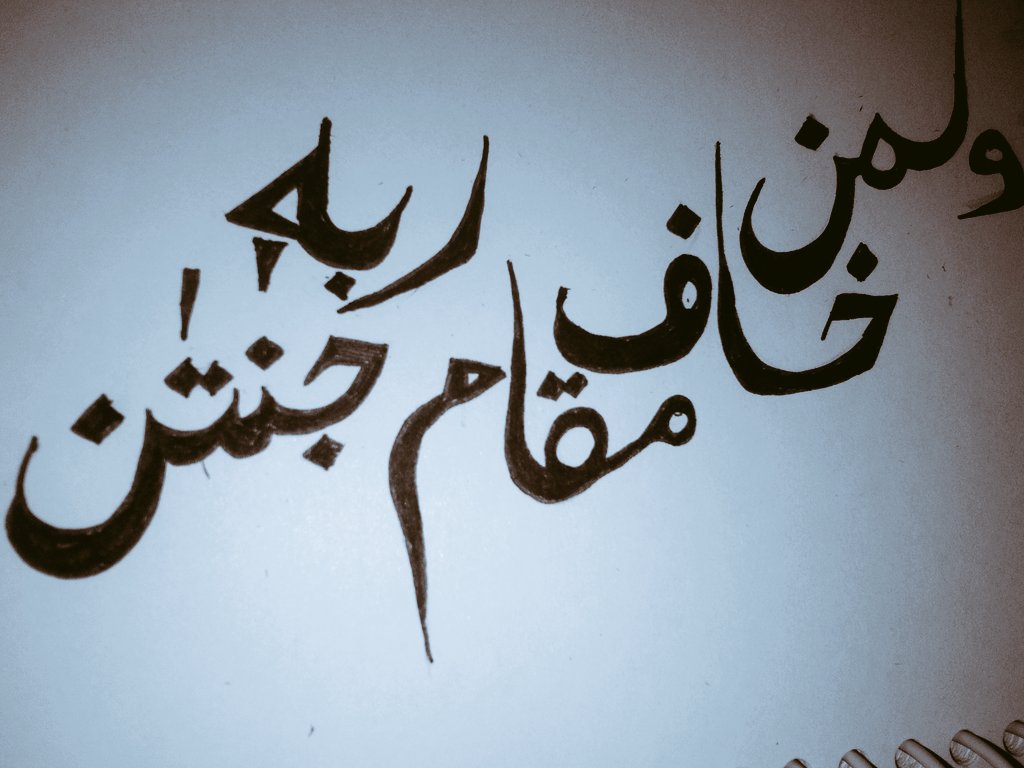 ولمن خاف مقام ربهٖ جنتٰن